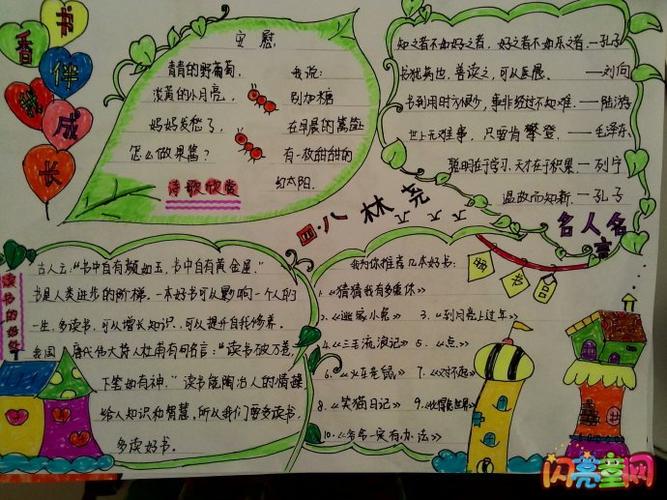 书香伴我成长
安慰
青青的野葡萄,
淡黄的小月亮,
妈妈发愁了,
怎么做果酱?
我说:
别加糖
在早晨的篱笆上
有一枚甜甜的
红太阳。
诗歌欣赏
知之者不如好之者,好之者不如乐之者.—孔子
书犹药也,善读之,可以医愚。——刘向
书到用时方恨少,事非经过不知难.—陆游
世上无难事,只要肯攀登.—毛泽东
聪明在于学习,天才在于积累.—列宁
温故而知新.—孔子
名人名言
四.八 林尧
读书的好处
古人云:“书中自有颜如玉,书中自有黄金屋.”
书是人类进步的阶梯。一本好书可以影响一个人的
一生,多读书,可以增长知识,可以提升自我修养。
我国唐代伟大诗人杜甫有句名言:“读书破万卷,
下笔如有神.”读书能陶冶人的情操
给人知识和智慧,所以我们要多读书,
多读好书。
我为你推荐几本好书:
1.《猜猜我有多爱你》
2.《逃家小兔》 3.《到月亮上过年》
4.《三毛流浪记》 5.《点》
6.《火车老鼠》 7.《对不起》
8.《笑猫日记》 9.
10.《爷爷一定有办法》
闪亮童网